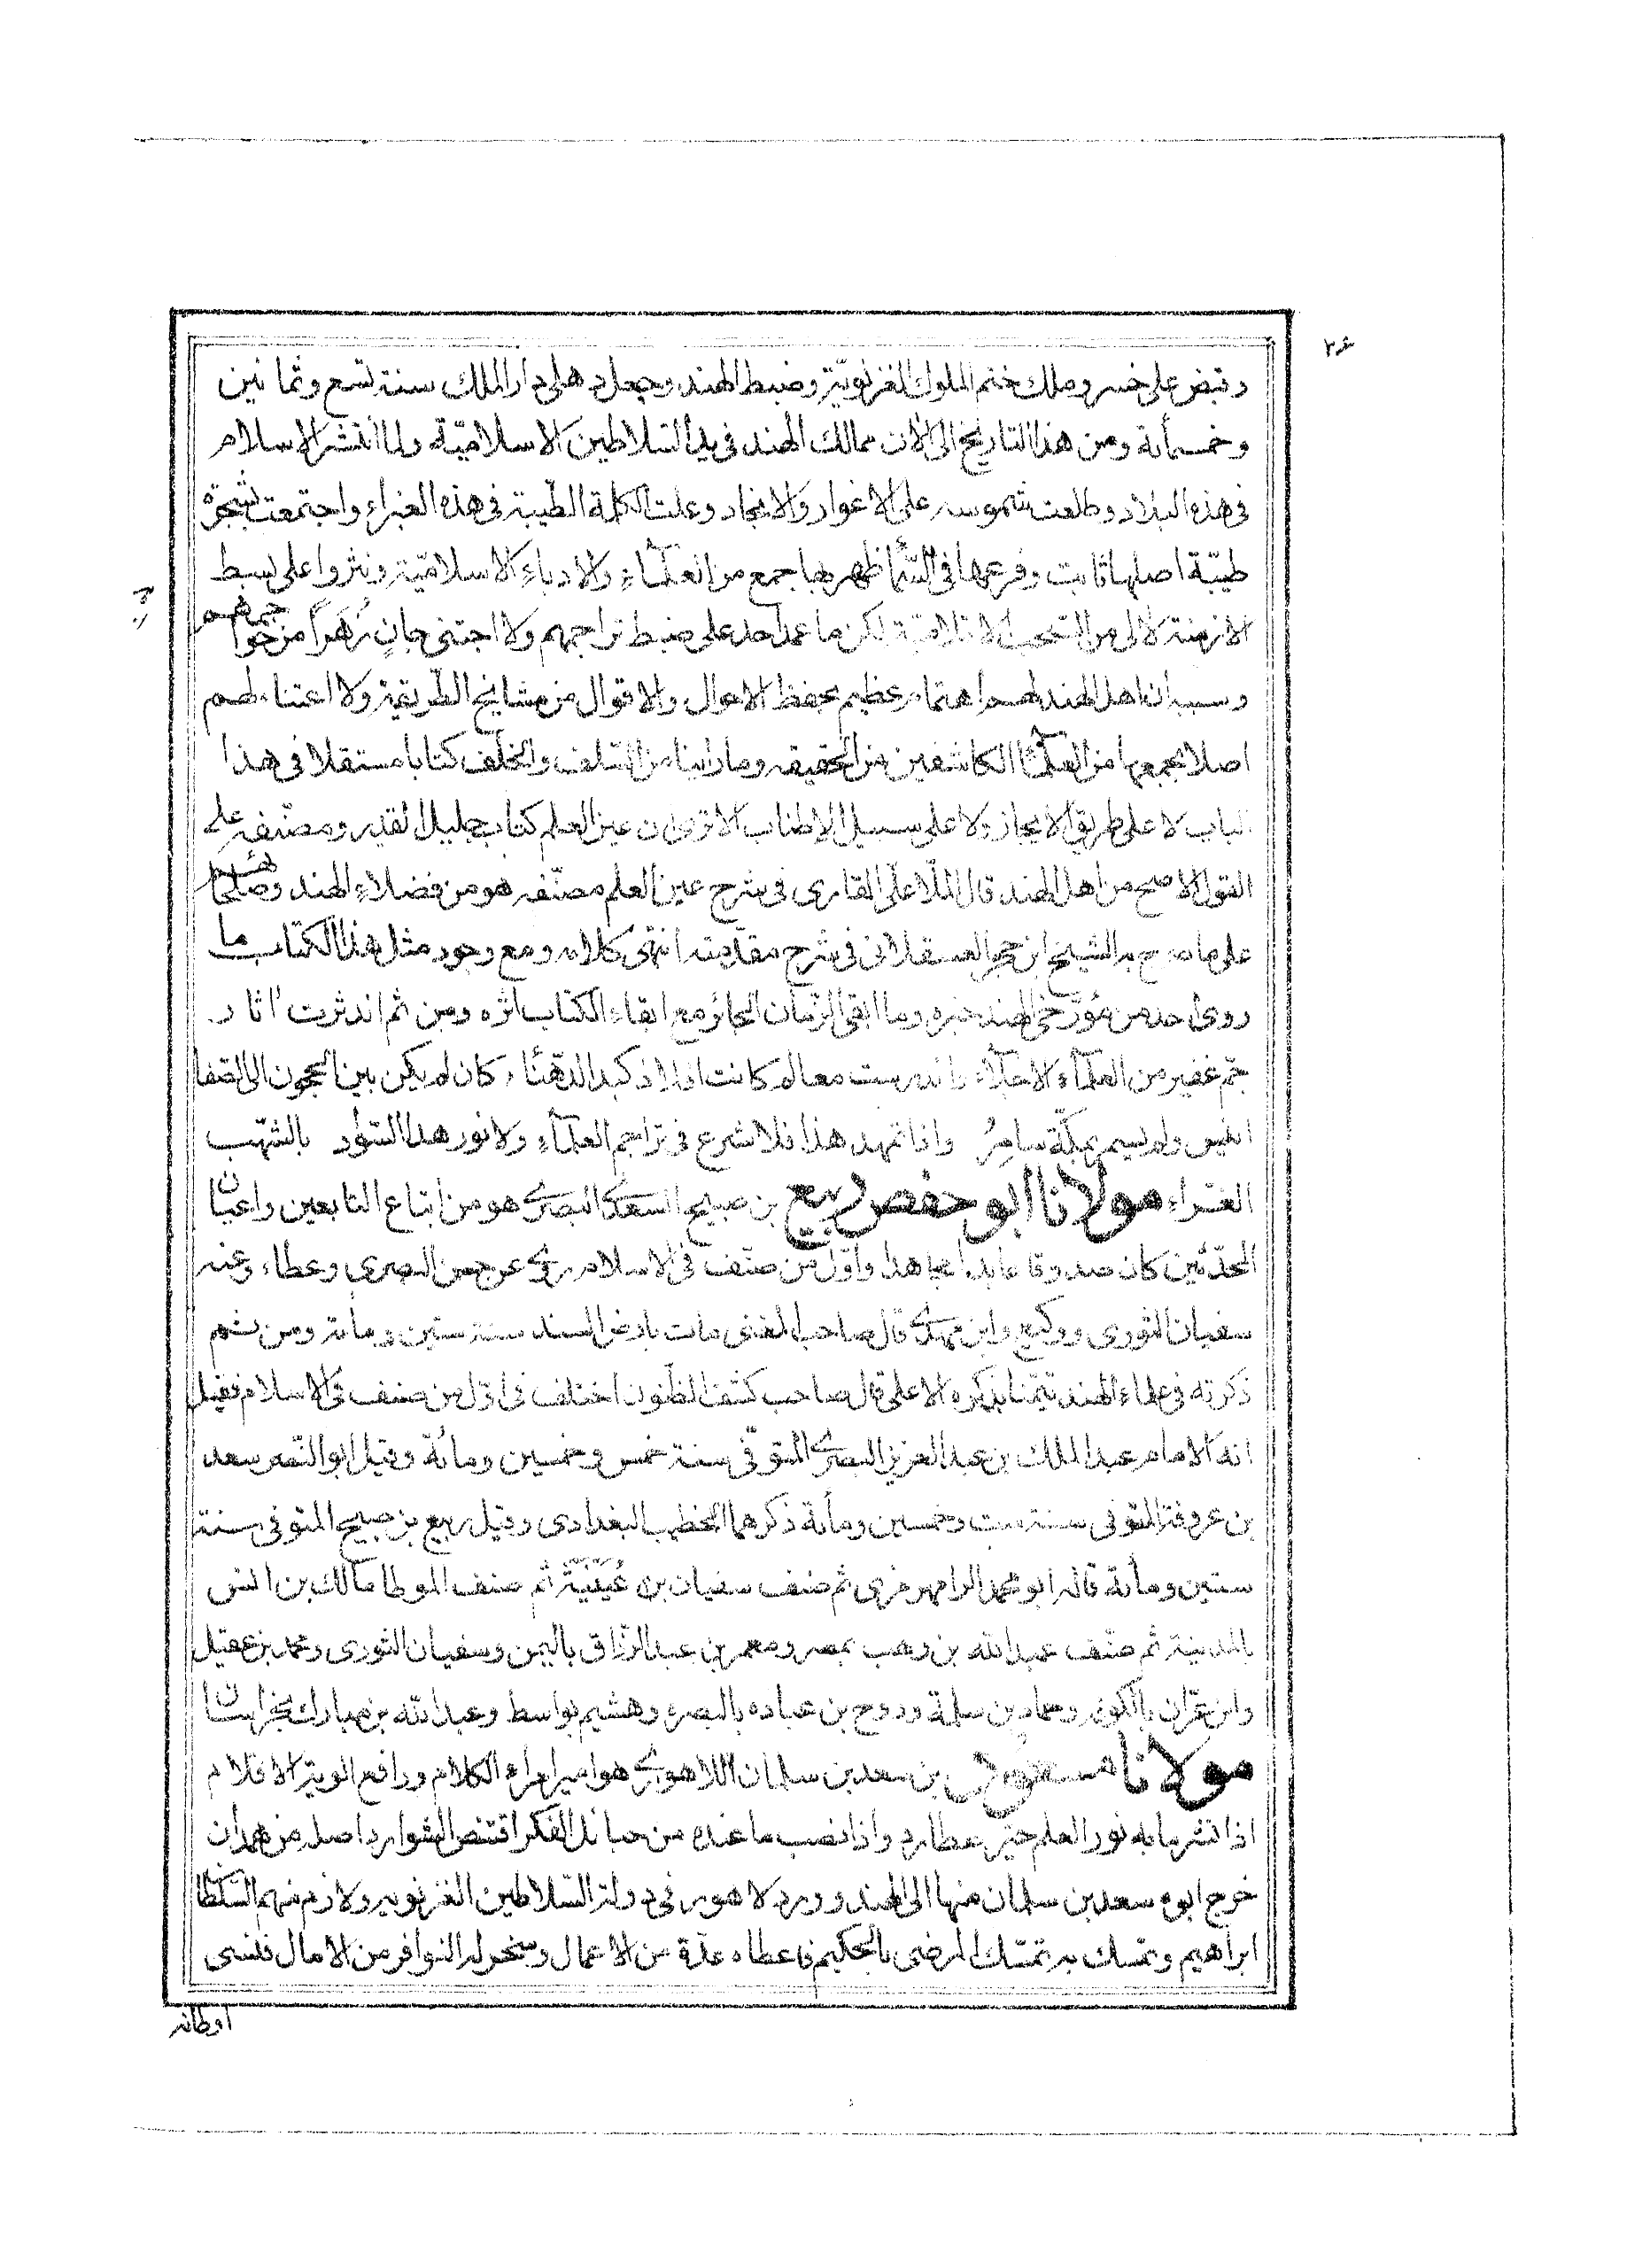 ٢٦
وقبض على خسرو ملك ختم الملوك الغزنويّة وضبط الهند وجعل دهلى دار الملك سنة تسع وثمانين
وخمسمأية ومن هذا التاريخ الى الآن ممالك الهند فى يد السّلاطين الاسلاميّة ولما انتشر الاسلام
فى هذه البلاد وطلعت شموسه على الاغوار والانجاد وعلت الكلمة الطيّبة فى هذه الغبراء واجتمعت شجرة
طيّبة اصلها ثابت وفرعها فى السّمآ ظهر بها جمع من العلمآءِ والادباءِ الاسلاميّة ونثروا على بسط
الازمنة لآلى من السّحب الاقلاميّة لكن ما عمد احد على ضبط تراجمهم ولا اجتنى جانٍ زَهَراً من
وسببه ان اهل الهند لهم اهتمام عظيم بحفظ الاحوال والاقوال من مشايخ الطّريقة ولا اعتناء لهم
اصلا بجمعها من العلمآء الكاشفين عن الحقيقه وما راينا من السّلف والخلف كتابا مستقلا فى هذا
الباب لا على طريق الايجاز ولا على سبيل الاطناب الا ترى ان عين العلم كتاب جليل القدر ومصنّفه على
القول الاصح من اهل الهند قال الملّا علىّ القارى فى شرح عين العلم مصنّفه هو من فضلاء الهند وصلحائهم
على ما صرح به الشيخ ابن حجر العسقلانى فى شرح مقدّمته انتهى كلامه ومع وجود مثل هذا الكتاب ما
روى احد من مُؤرّخى الهند خبره وما ابقى الزّمان الجائر مع ابقاء الكتاب اثره ومن ثم اندثرت اثار
جمّ غفير من العلمآء الاجلّاء واندرست معالم كانت افلاذ كبد الدّهناء كان لم يكن بين الحجون الى الصّفا
انيس ولم يسمر بمكّة سامرُ واذا تمهد هذا فلا شرع فى تراجم العلمآءِ ولانور هذا السّواد بالشّهب
الغرّاء مولانا ابو حفص ربيع بن صبيح السعدى البصرى هو من اتباع التابعين واعيان
المحدّثين كان صدوقا عابدا مجاهدا واوّل من صنّف فى الاسلام روى عن حسن البصرى وعطاء وعنه
سفيان الثورى ووكيع وابن مهدى قال صاحب المغنى مات بارض السند سنة ستين ومائة ومن ثم
ذكرته فى علماء الهند تيمّنا بذكره الاعلى قال صاحب كشف الظّنون اختلف فى اوّل من صنف فى الاسلام فقيل
انه الامام عبد الملك بن عبد العزيز البصرى المتوفّى سنة خمس وخمسين ومائة وقيل ابو النّصر سعد
بن عروفة المتوفى سنة ست وخمسين ومأئة ذكرهما الخطيب البغدادى وقيل ربيع بن صبيح المتوفى سنة
ستين ومأئة قاله ابو محمد الرامهرمزى ثم صنف سفيان بن عُيَيْنَة ثم صنف الموطا مالك بن انس
بالمدينة ثم صنّف عبد الله بن وهب بمصر ومعمر بن عبد الرّزاق باليمن وسفيان الثورى ومحمد بن
وابن بالكوفه وحماد بن سلمة وروح بن عباده بالبصره وهشيم بواسط وعبد الله بن مبارك بخراسان
مولانا مسعود بن سعد بن سلمان اللاهورى هو امير امراء الكلام ورافع الوية الاقلام
اذا نشر ما به نور العلم حيّر عطارد واذا نصب ما عنده من حبائل الفكر اقتنص الشوارد اصله من همدان
خرج ابوه سعد بن سلمان منها الى الهند وورد لاهور فى دولة السّلاطين الغزنويه ولازم منهم السّلطان
ابراهيم وتمسك به تمسّك المرضى بالحكيم فاعطاه عدّة من الاعمال وسخر له النوافر من الامال فنسى
اوطانه